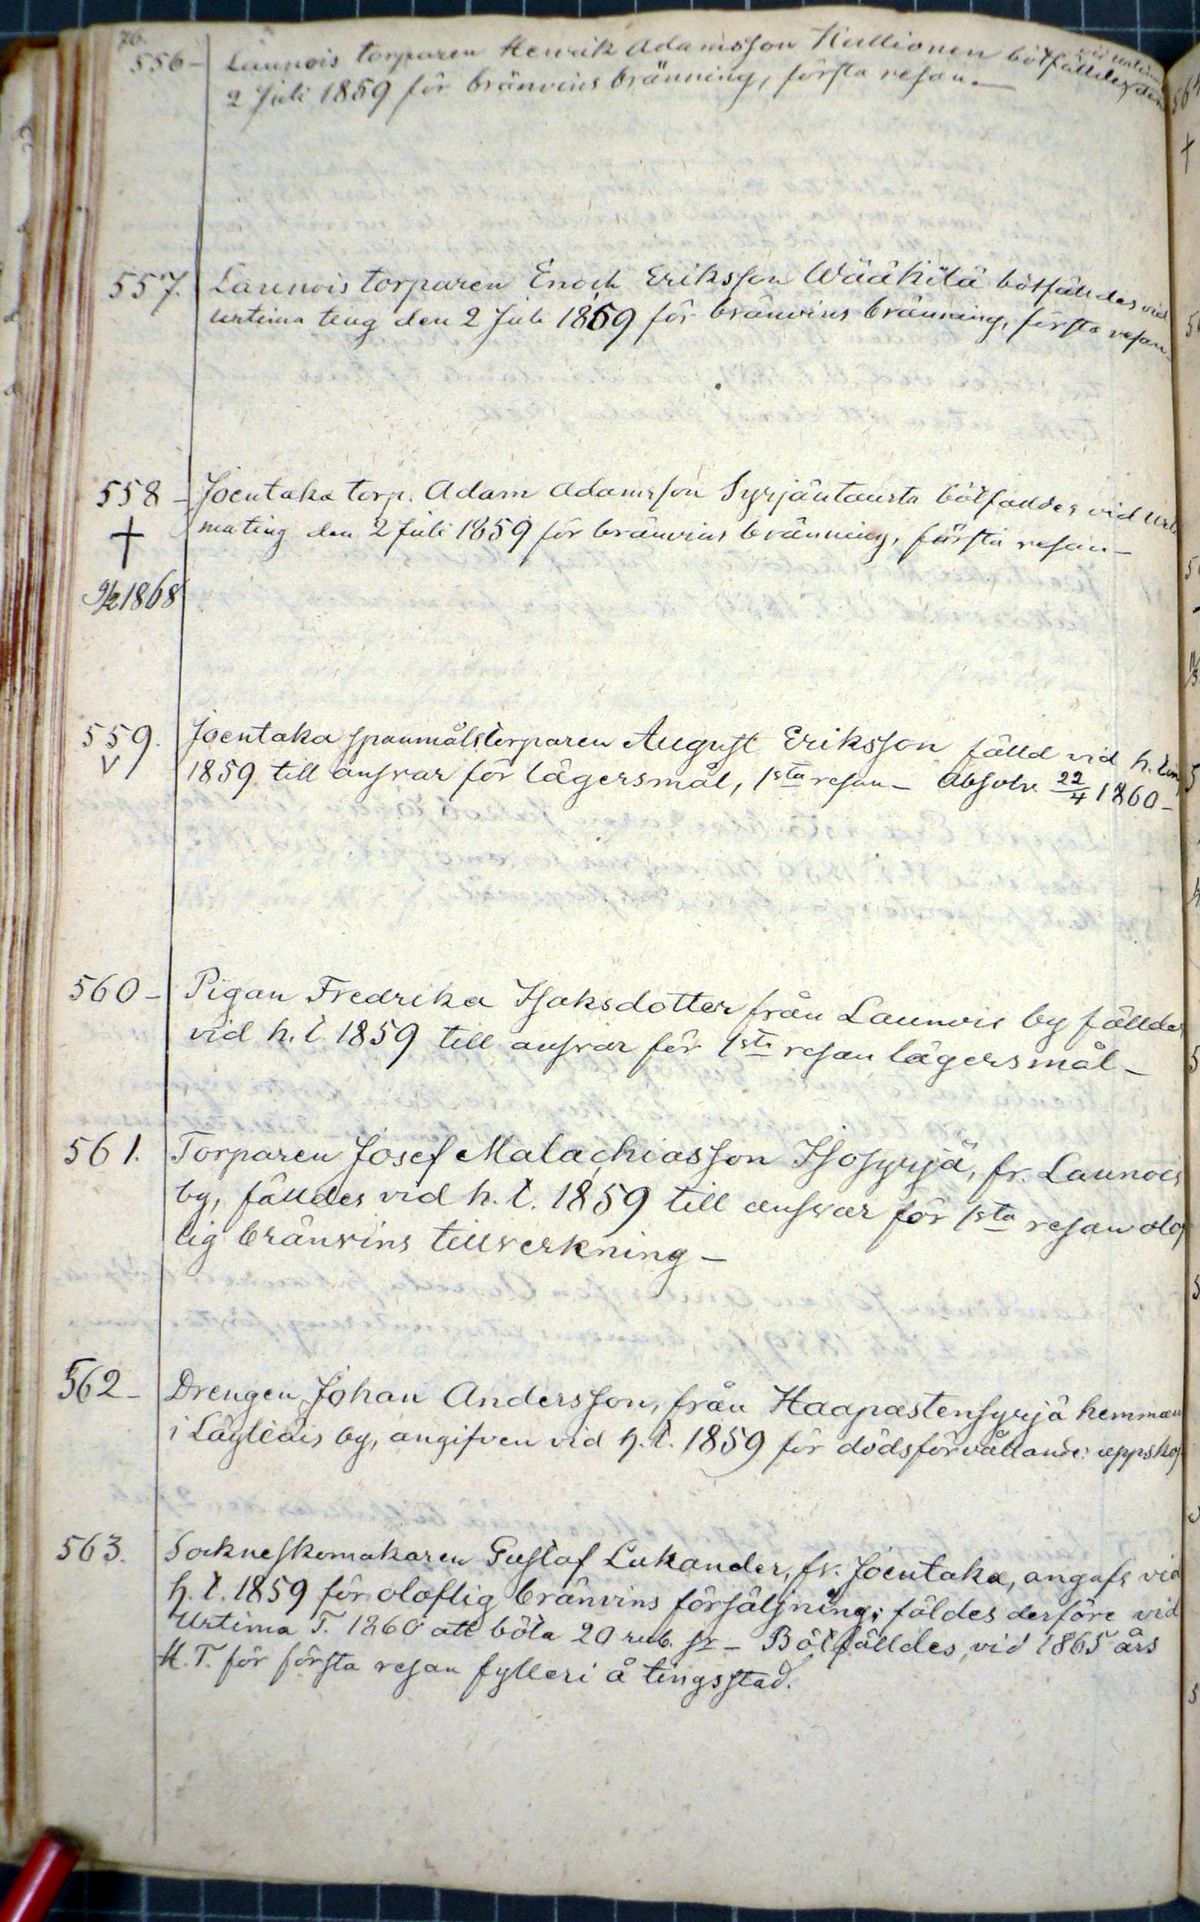 76.
556 - Launois torparen Henrik Adamsson Kallionen bötfälldes vid urtima den
2 Juli 1859 för bränvins bränning, första resan. -
557. Launois torparen Enoch Eriksson Wäähitä bötfälldes vid
urtima ting den 2 Juli 1859 för bränvins bränning, första resan -
558 - Joentaka torp. Adam Adamsson Syrjäntausta bötfälldes vid urti
ma ting den 2 Juli 1859 för bränvins bränning, första resan -
9/2 1868
559. Joentaka spanmålstorparen August Eriksson fälld vid h. ting
V 1859 till ansvar för lägersmål, 1sta resan - Absolv. 22/4 1860 -
560 - Pigan Fredrika Isaksdotter från Launois by fälldes
vid h. t. 1859 till ansvar för 1sta resan lägersmål -
561. Torparen Josef Malachiasson Isosyrjä, fr. Launois
by, fälldes vid h. t. 1859 till ansvar för 1sta resan olof
lig bränvins tillverkning -
562 - Drengen Johan Andersson, från Haapastensyrjä hemman
i Läyliäis by, angifven vid h. t. 1859 för dödsförvållande: uppskof
563. Sockneskomakaren Gustaf Lukander, fr. Joentaka, angafs vid
h. t. 1859 för oloflig bränvins försäljning; fäldes derföre vid
Urtima T. 1860 att böta 20 rub. sr - Bötfälldes vid 1865 års
H. T. för första resan fylleri å tingsstad.